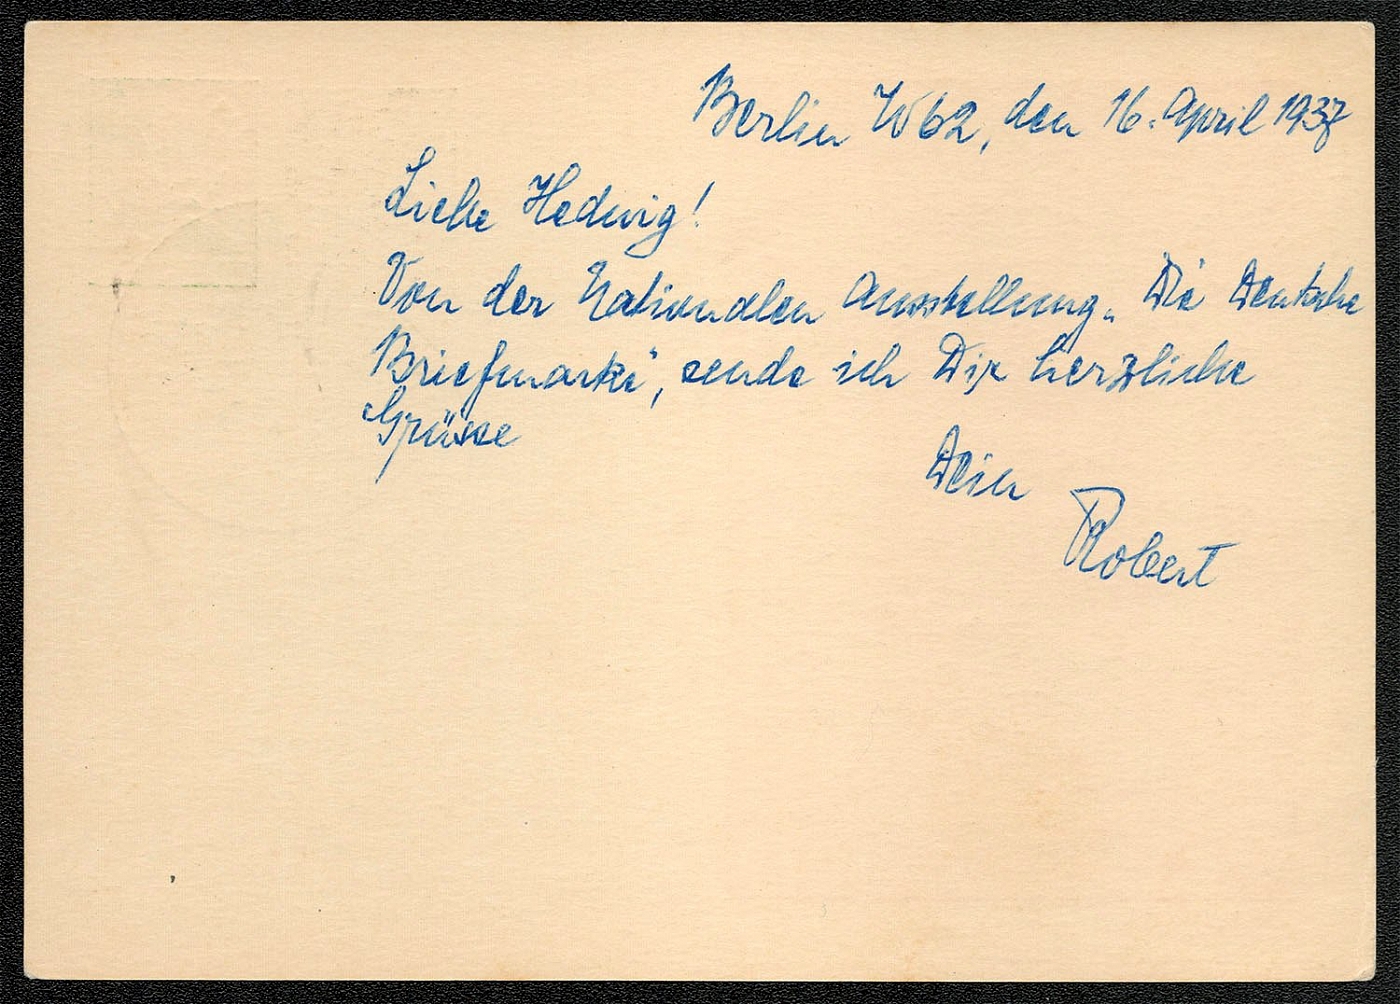 Berlin W62, den 16. April 1937
Liebe Hedwig!
Von der Nationalen Ausstellung „Die Deutsche
Briefmarke“, sende ich Dir herzliche
Grüsse
Dein
Robert